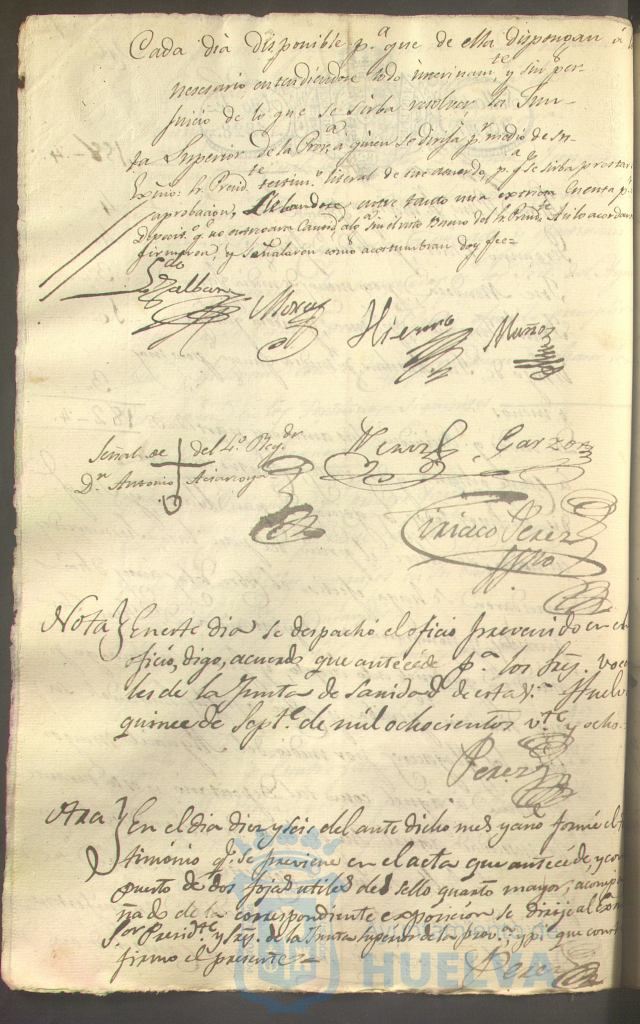 Cada dia disponible p.ª que de ella dispongan á
nesesario entendiendose todo interinam.te y sin per-
juicio de lo que se sirba resolver la Jun-
ta Superior de la Prov.ª á quien se dirija p.r medio de su
Exmo. Sr. Presid.te testim.o literal de este acuerdo, p.ª q.e se sirba prestar
aprobacion, llebandose entre tanto una exacta Cuenta p.r
Deposit.o q.e no entregara Cantid. alg.ª sin el visto Bueno del Sr. Presid.te Asi lo acordaron
firmaron, y señalaron como acostumbran doy fee=
Galban Mora Hierro Muñoz
Señal de del 4.o Reg.dor
D.n Antonio
Perez Garzon
Ciriaco Perez
Nota} En este dia se despachó el oficio prevenido en el
oficio, digo, acuerdo que antecede p.ª los Sres. Voca
les de la Junta de Sanidad de esta v.ª Huelv
quince de Sept.e de mil ochocientos v.te y ocho=
Perez
Otra} En el dia diez y seis del ante dicho mes y año formé el
timonio q.e se previene en el acta que antecéde, y com
puesto de dos fojas utiles del sello quarto mayor, acompa
ñado de la correspondiente exposicion se dirije al Exmo
Sor Presid.te y Sres. de la Junta superior de la prov.ª y p.ª que conste
firmo el presente=
Perez
HUELVA